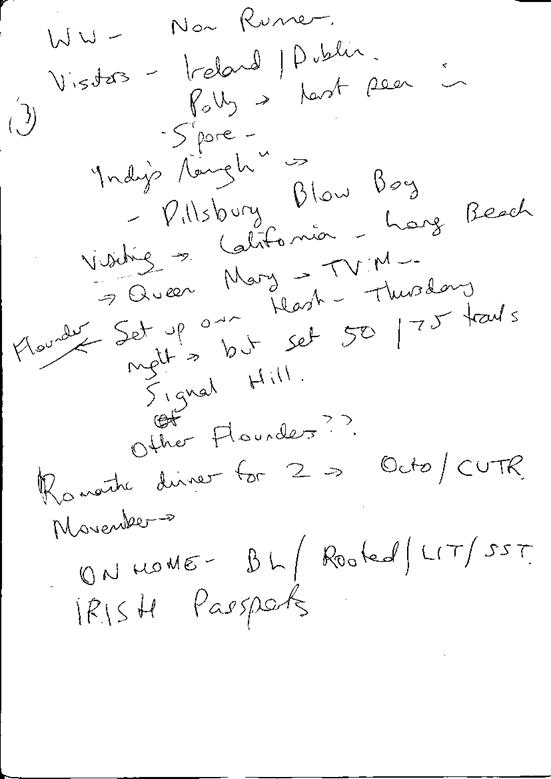 WW - Non Runner.
Visitors - Ireland / Dublin.
(3)
Polly → last seen in
S'pore -
"Indy's laugh" →
- Pillsbury Blow Boy
Visiting → California - Long Beach
→ Queen Mary → TVM --
Flounder ← Set up own Hash - Thursday
night → but set 50 / 75 trails
Signal Hill.
Other Flounders??
Romantic dinner for 2 → Octo / CUTR
Movember →
ON HOME - BL / Rooted / LIT / SST.
IRISH Passports